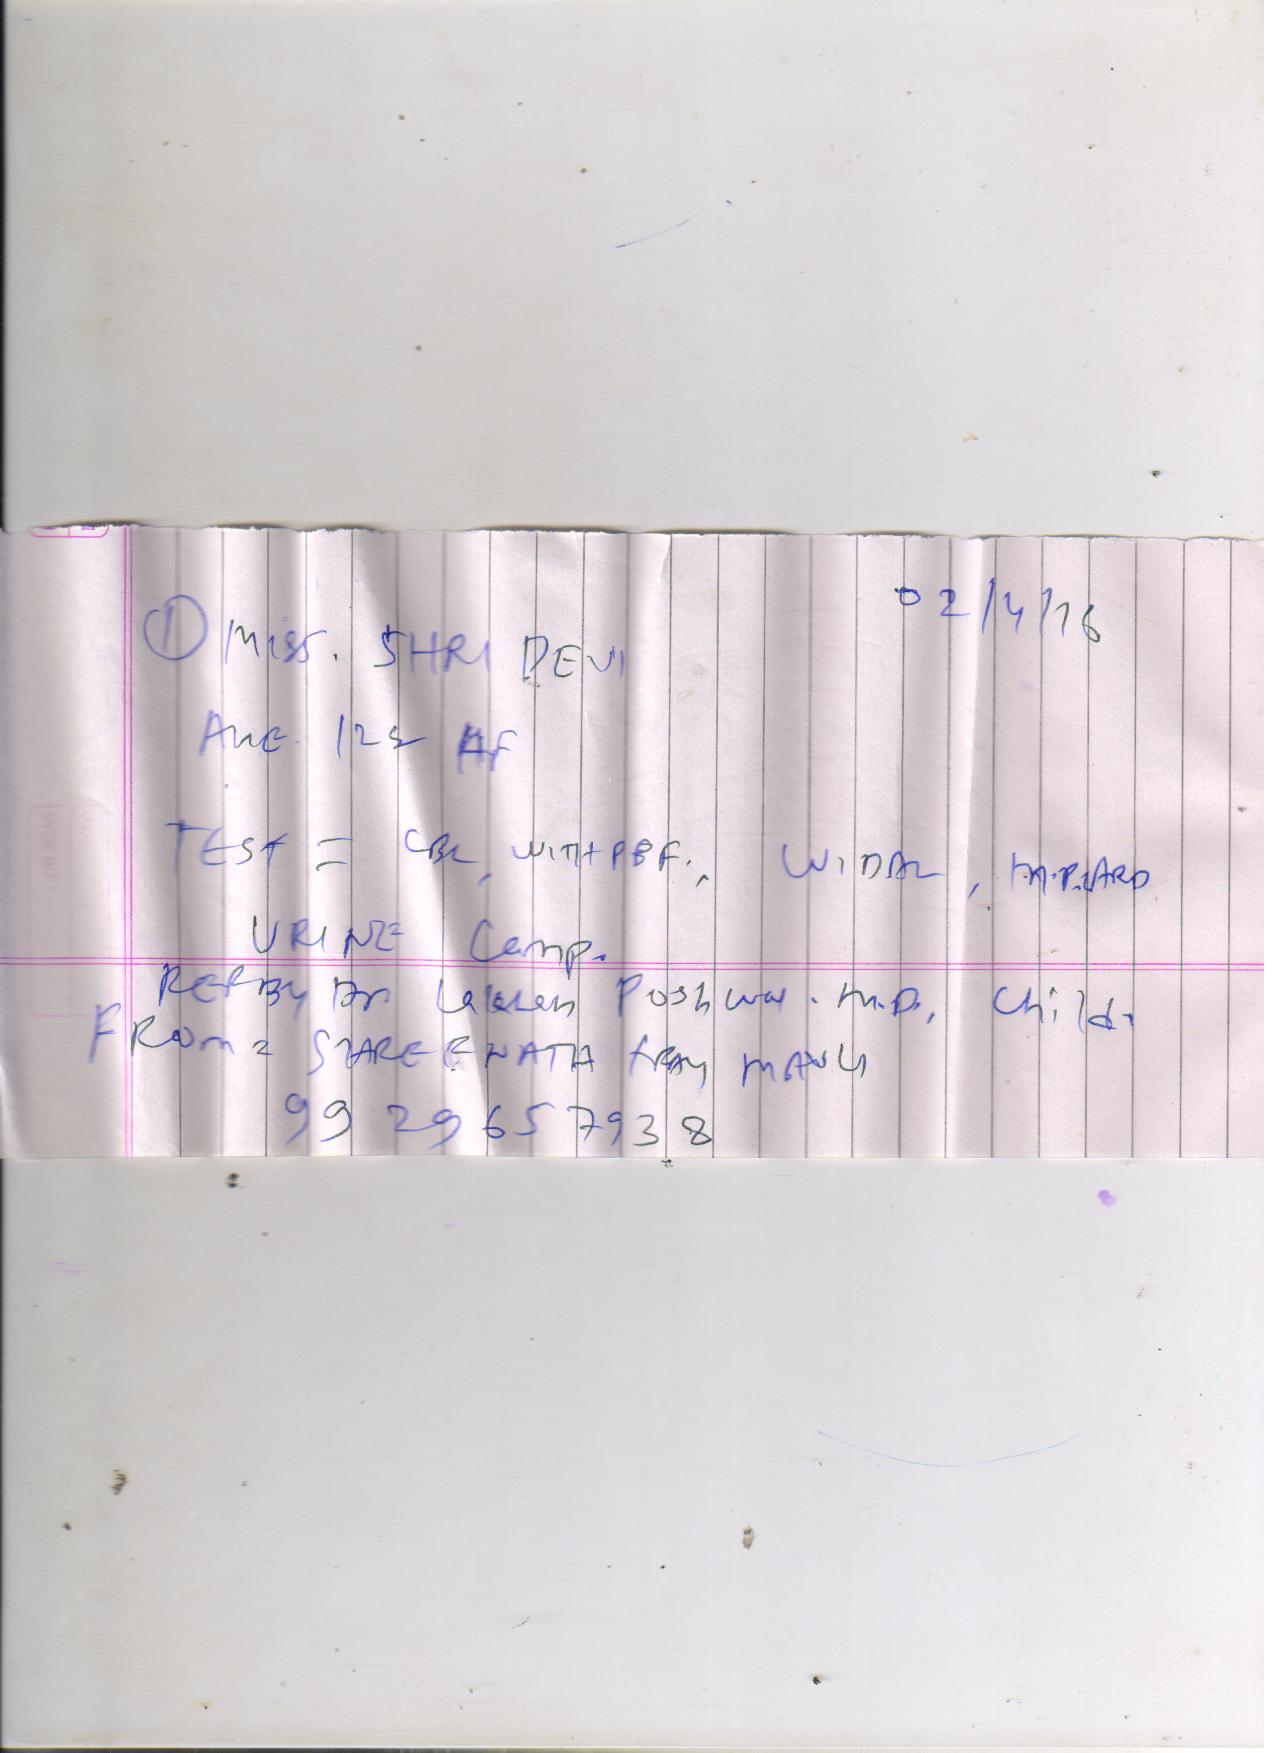 02/4/16
① Miss. SHRI DEVI
AGE 12 F
TEST = CBC, WITH PBF., WIDAL, M.P. CARD
URINE Comp.
REF BY Dr Poshwal. M.D., Child.
FROM = SHREENATH
9929657938